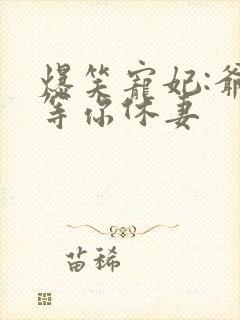 爆笑寵妃:爺
等你休妻
苗稀